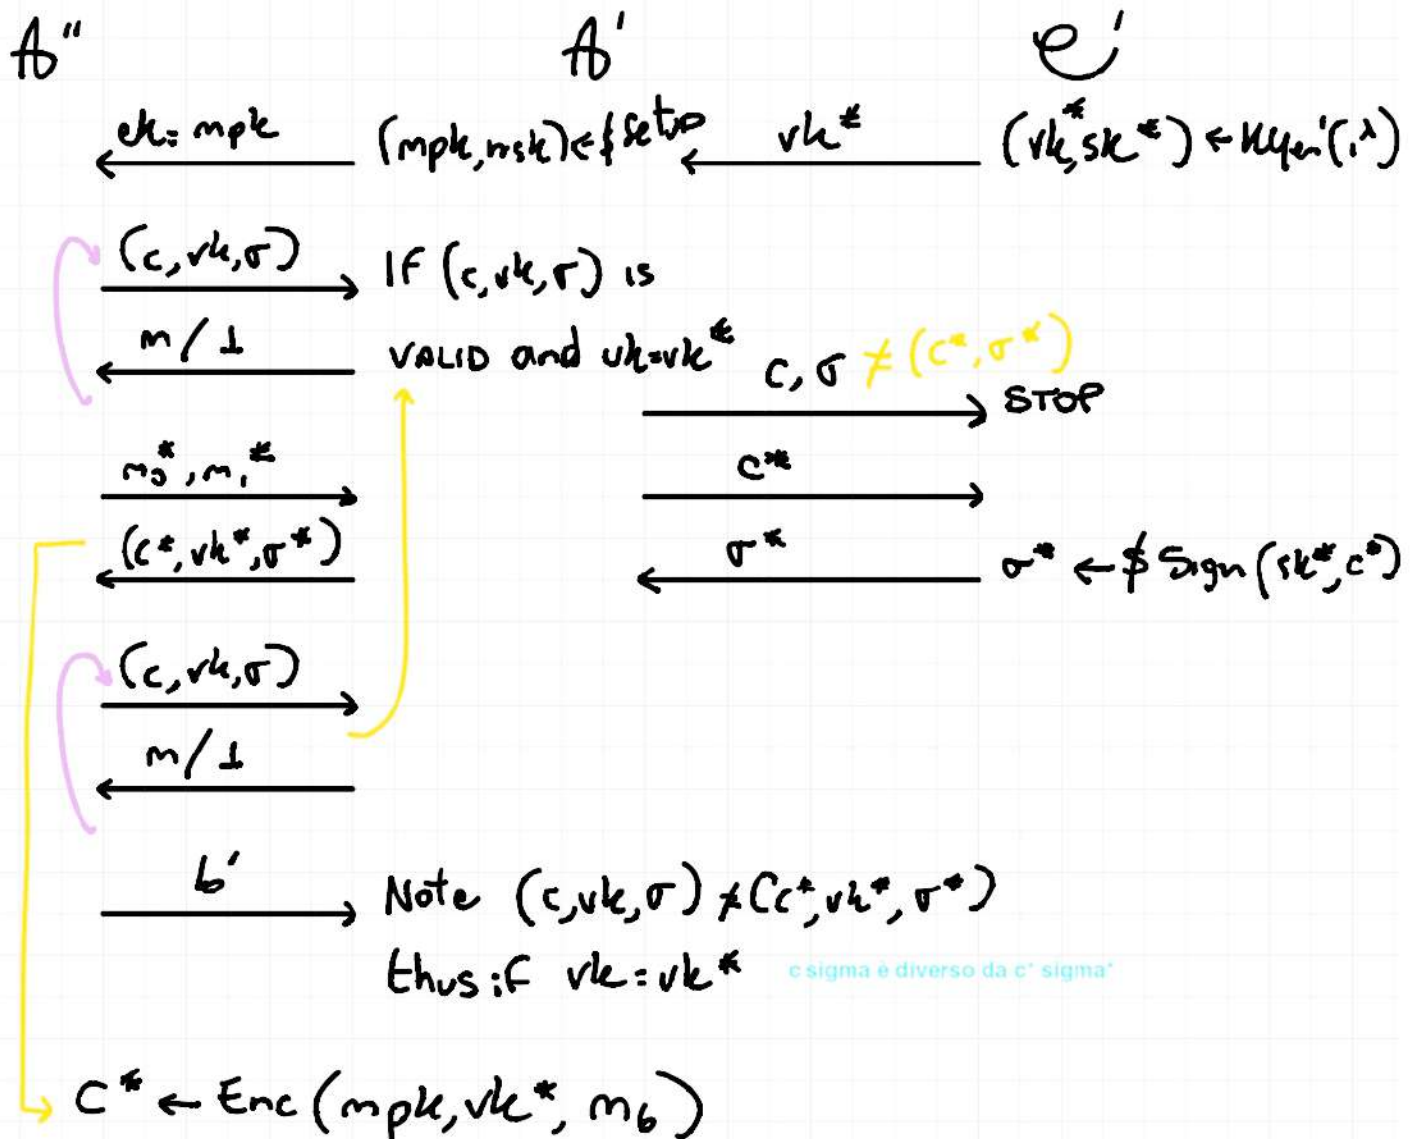 A'' A' C'
ek = mpk (mpk, msk) ←$ Setup vk* (vk*, sk*) ← KGen'(1^λ)
(c, vk, σ) IF (c, vk, σ) is
m/⊥ VALID and vk=vk* c, σ ≠ (c*, σ*)
STOP
m₀*, m₁* c*
(c*, vk*, σ*) σ* σ* ←$ Sign(sk*, c*)
(c, vk, σ)
m/⊥
b' Note (c, vk, σ) ≠ (c*, vk*, σ*)
thus if vk = vk* c sigma è diverso da c* sigma*
C* ← Enc(mpk, vk*, m_b)